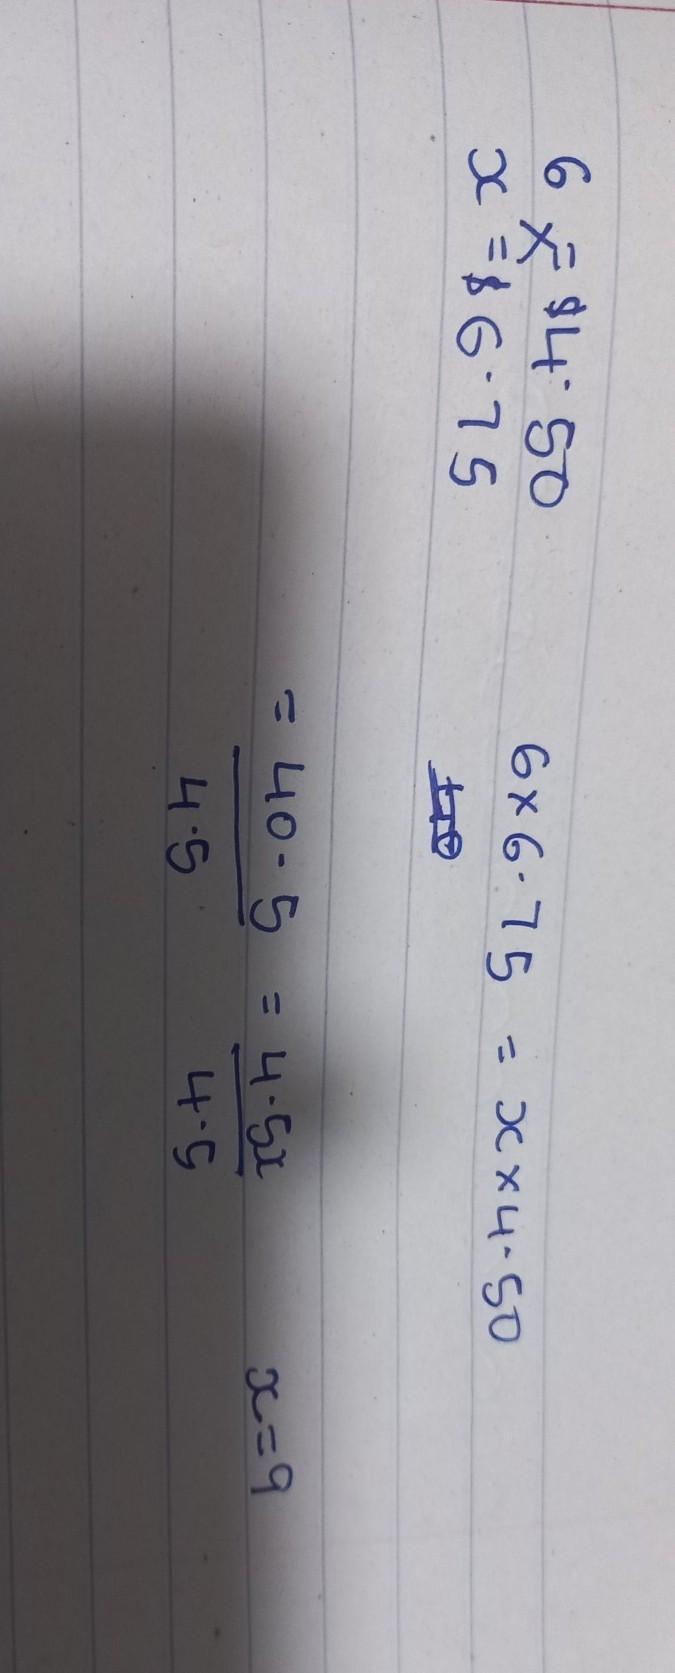 6 = $4.50
x = $6.75
6 x 6.75 = x x 4.50
= 40.5 = 4.5x
4.5 4.5
x = 9